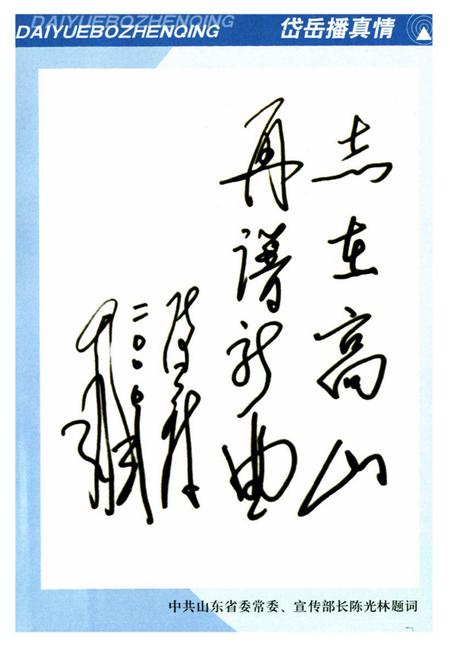 DAIYUEBOZHENQING
岱岳播真情
志在高山
再谱新曲
陈光林
二〇〇〇年
中共山东省委常委、宣传部长陈光林题词